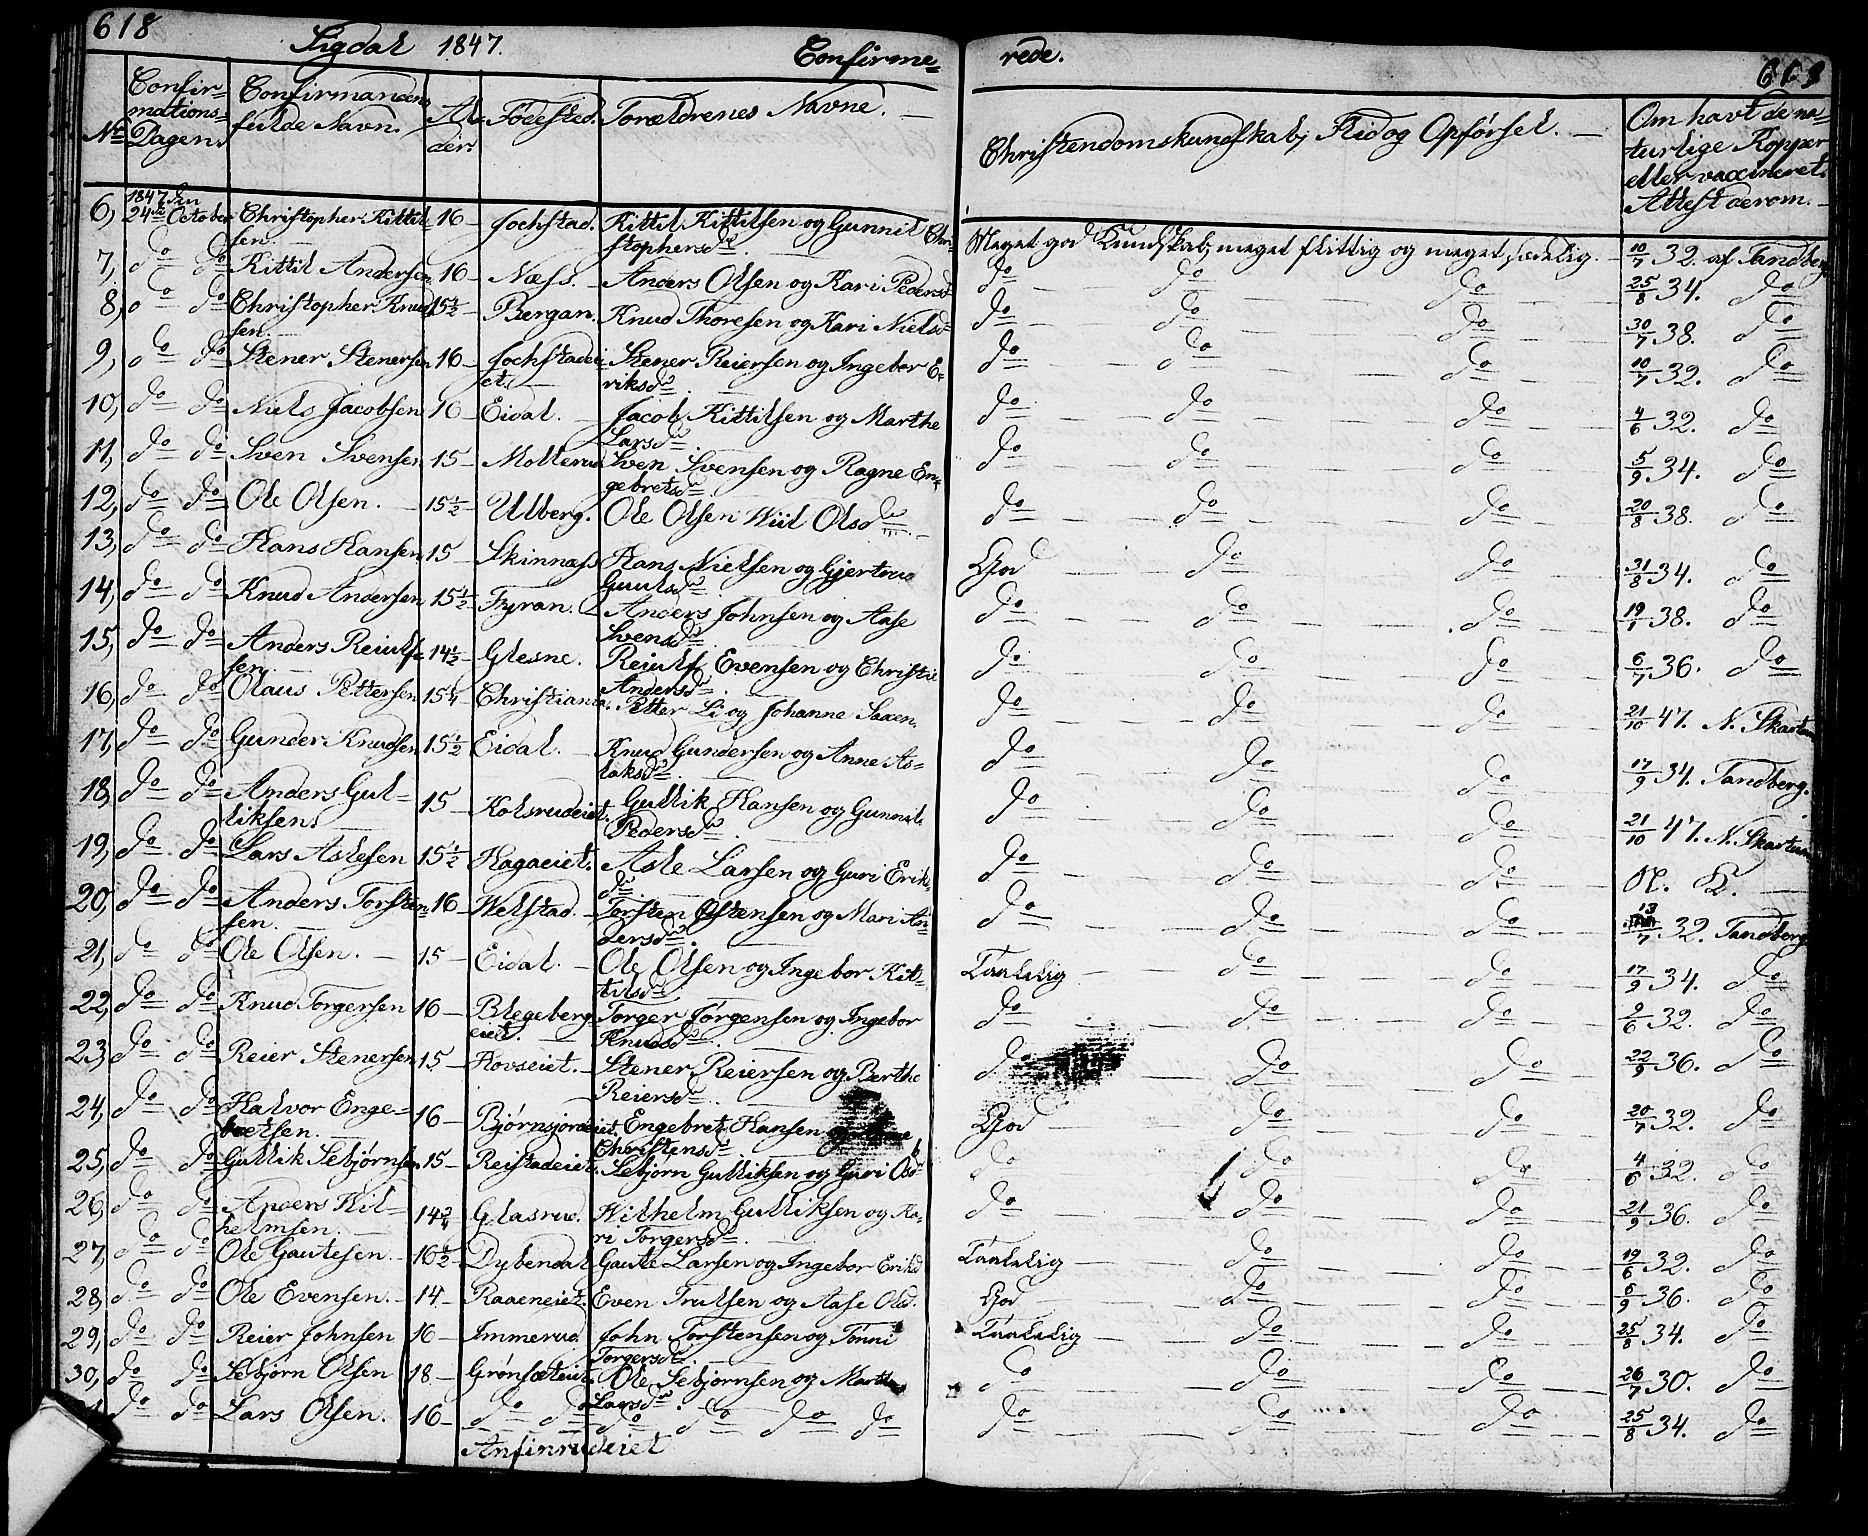 618
Sigdal 1847. Confirme= rede. 619
Nr. Confir=mations=Dagen. Confirmandens fulde Navn. Al=der. Fødested. Forældrenes Navne. Christendomskundskab, Flid og Opførsel. Om havt de na=turlige Kopper eller vaccineret. Attest derom.
6, 1847 den 24de October Christopher Kittil=sen. 16 Jochstad. Kittil Kittilsen og Gunnil Chri=stophersdr. Meget god Kundskab, meget flittig og meget sædelig. 10/7 32. af Tandberg
7, do do Kittil Andersen 16 Næss. Anders Olsen og Kari Pedersdr do do do 25/8 34. do
8, do do Christopher Knud=sen. 15½ Bergan. Knud Thoresen og Kari Nielsdr do do do 30/7 38. do
9, do do Stener Stenersen 16 Jochstadei=et. Stener Reiersen og Ingebor E=riksdr. do do do 10/7 32. do
10, do do Niels Jacobsen 16 Eidal. Jacob Kittilsen og Marthe Larsdr. do do do 4/6 32. do
11, do do Sven Svensen 15 Mollerud Sven Svensen og Ragne En=gebretsdr. do do do 5/9 34. do
12, do do Ole Olsen. 15½ Ulberg. Ole Olsen Wiil Olsdr. do do do 20/8 38. do
13, do do Hans Hansen 15 Skinnæss Hans Nielsen og Gjertrud Guulsdr. God do do 31/8 34. do
14, do do Knud Andersen 15½ Fyran. Anders Johnsen og Aase Svensdr. do do do 19/1 38. do
15, do do Anders Reiulf=sen. 14½ Glesne. Reiulf Evensen og Christie Andersdr. do do do 6/7 36. do
16, do do Olaus Pettersen 15¼ Christiania. Petter Li og Johanne Saxen. do do do 21/10 47. N. Skartum
17, do do Gunder Knudsen 15½ Eidal. Knud Gundersen og Anne As=laksdr. do do do 17/9 34. Tandberg.
18, do do Anders Gul=liksen. 15 Kolsrudeiet. Gullik Hansen og Gunnil Pedersdr. do do do 21/10 47. N. Skartum
19, do do Lars Aslesen 15½ Hagaeiet. Asle Larsen og Guri Eriks=dr do do do N. K.
20, do do Anders Torsten=sen. 16 Welstad. Torsten Østensen og Mari An=dersdr. do do do 13/7 32. Tandberg
21, do do Ole Olsen. 15 Eidal. Ole Olsen og Ingebor Kit=tilsdr Taalelig do do 17/9 34. do
22, do do Knud Torgersen 16 Blegeberg=eiet. Torger Jørgensen og Ingebor Knudsdr. do do do 2/6 32. do
23, do do Reier Stenersen 15 Hovseiet. Stener Reiersen og Berthe Reiersdr. do do do 22/9 36. do
24, do do Halvor Enge=bretsen. 16 Bjørnsjordeiet Engebret Hansen og Christensdr. God do do 20/7 32. do
25, do do Gullik Sebjørnsen 15 Reistadeiet. Sebjørn Gulliksen og Guri Olsdr do do do 4/6 32. do
26, do do Anders Wil=helmsen. 14¾ Glasrud. Wilhelm Gulliksen og Ka=ri Torgersdr. do do do 21/9 36. do
27, do do Ole Gautesen. 16½ Dybendal Gaute Larsen og Ingebor Eriksd Taalelig do do 19/6 32. do
28, do do Ole Evensen. 14 Raaeneiet. Even Trulsen og Aase Olsd. God do do 6/9 36. do
29, do do Reier Johnsen 16 Immerud. John Torstensen og Tonni Torgersdr. Taalelig do do 25/8 34. do
30, do do Sebjørn Olsen 18 Grønsæteiet. Ole Sebjørnsen og Marthe Larsdr. do do do 26/7 30. do
do do Lars Olsen. 16 do do do do do do do do do 25/8 34. do
Anfinrudeiet